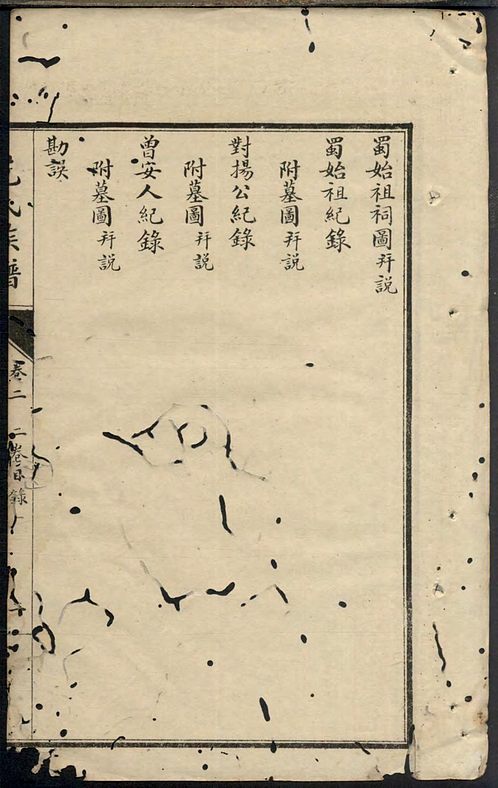 蜀始祖祠圖并說
蜀始祖紀錄
附墓圖并說
對揚公紀錄
附墓圖并說
曾安人紀錄
附墓圖并說
勘誤
氏族譜
卷二 二卷目錄